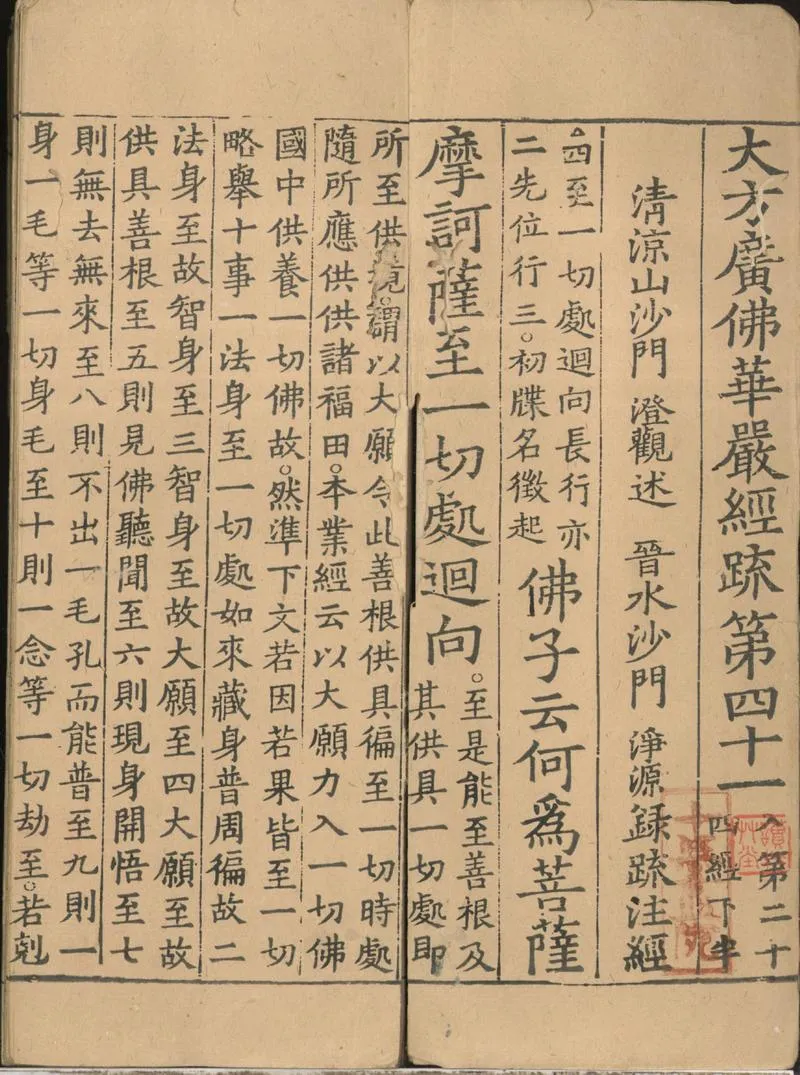 大方廣佛華嚴經疏第四十一
入第二十
四經下半
清涼山沙門 澄觀述 晉水沙門 淨源錄疏注經
四至一切處迴向長行亦
二先位行三。初牒名徵起
佛子云何爲菩薩
摩訶薩至一切處迴向
。至是能至善根及
其供具一切處即
所至供境謂以大願令此善根供具徧至一切時處
隨所應供供諸福田。本業經云以大願力入一切佛
國中供養一切佛故。然準下文若因若果皆至一切
略舉十事一法身至一切處如來藏身普周徧故二
法身至故智身至三智身至故大願至四大願至故
供具善根至五則見佛聽聞至六則現身開悟至七
則無去無來至八則不出一毛孔而能普至九則一
身一毛等一切身毛至十則一念等一切劫至。若剋